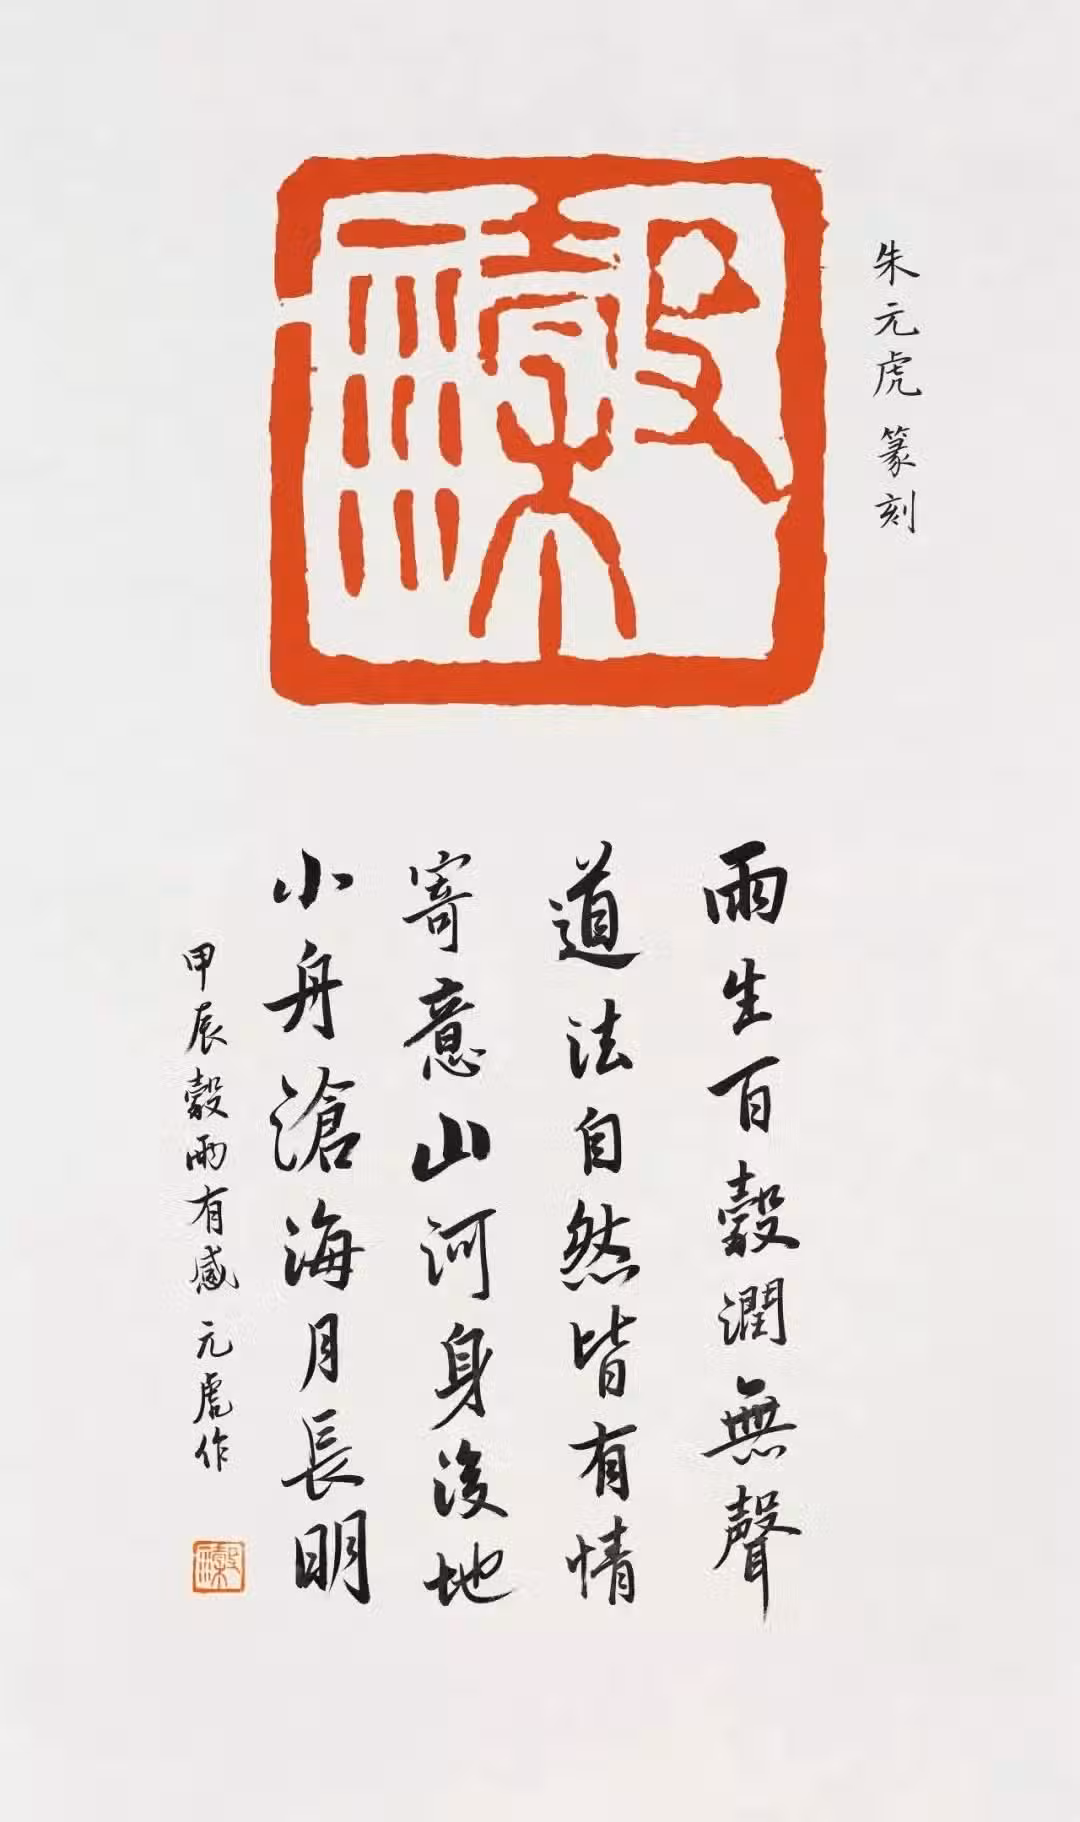 榖雨
朱元虎 篆刻
雨生百穀潤無聲
道法自然皆有情
寄意山河身後地
小舟滄海月長明
甲辰穀雨有感 元虎作
榖雨